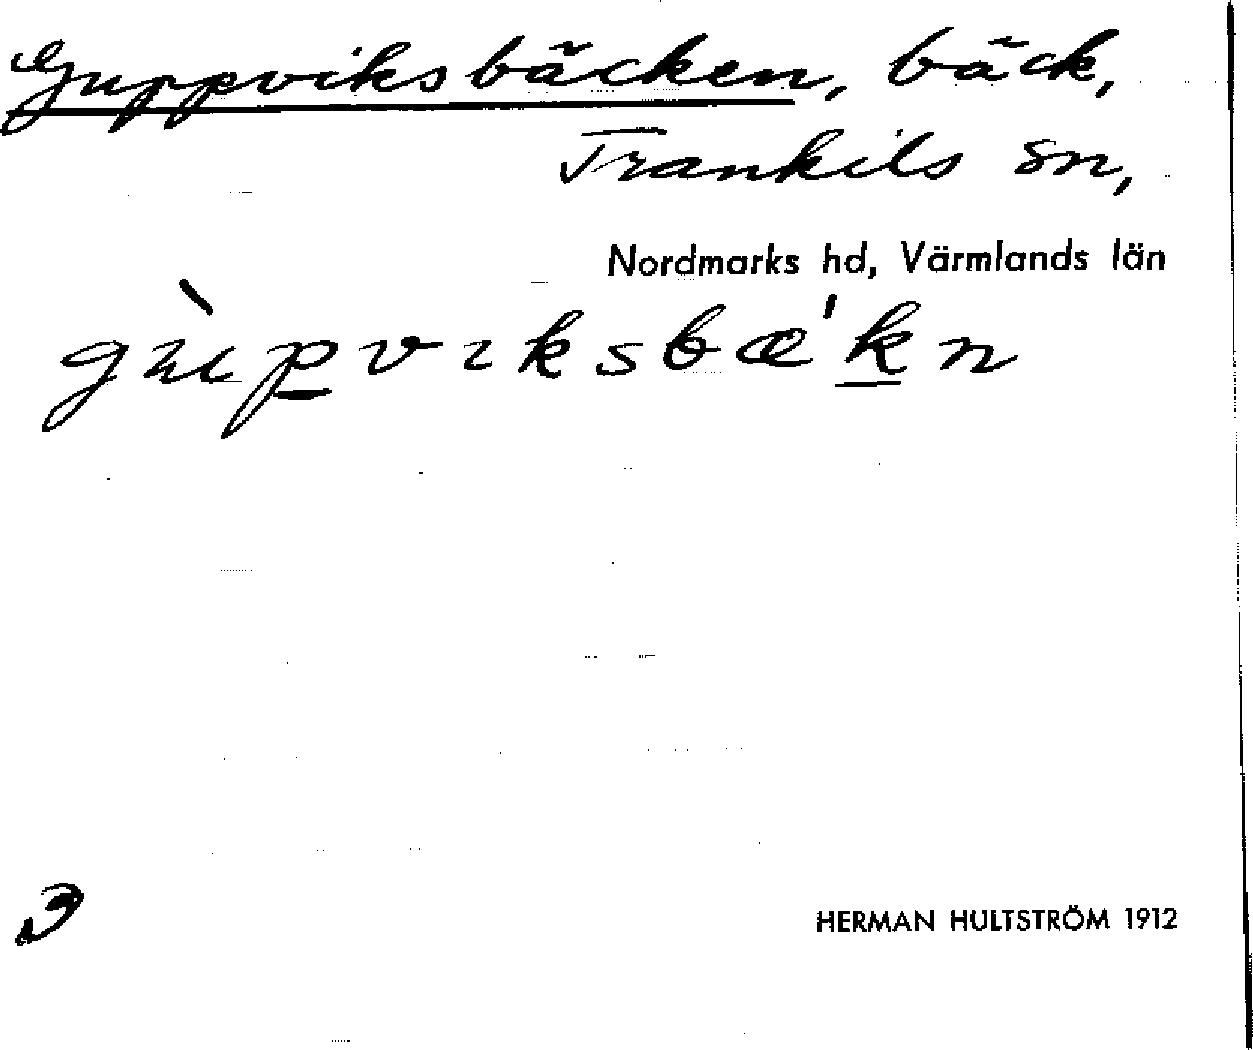 Guppviksbäcken, bäck,
Trankils sn,
Nordmarks hd, Värmlands län
gùpvıksbæ'kn
3
HERMAN HULTSTRÖM 1912